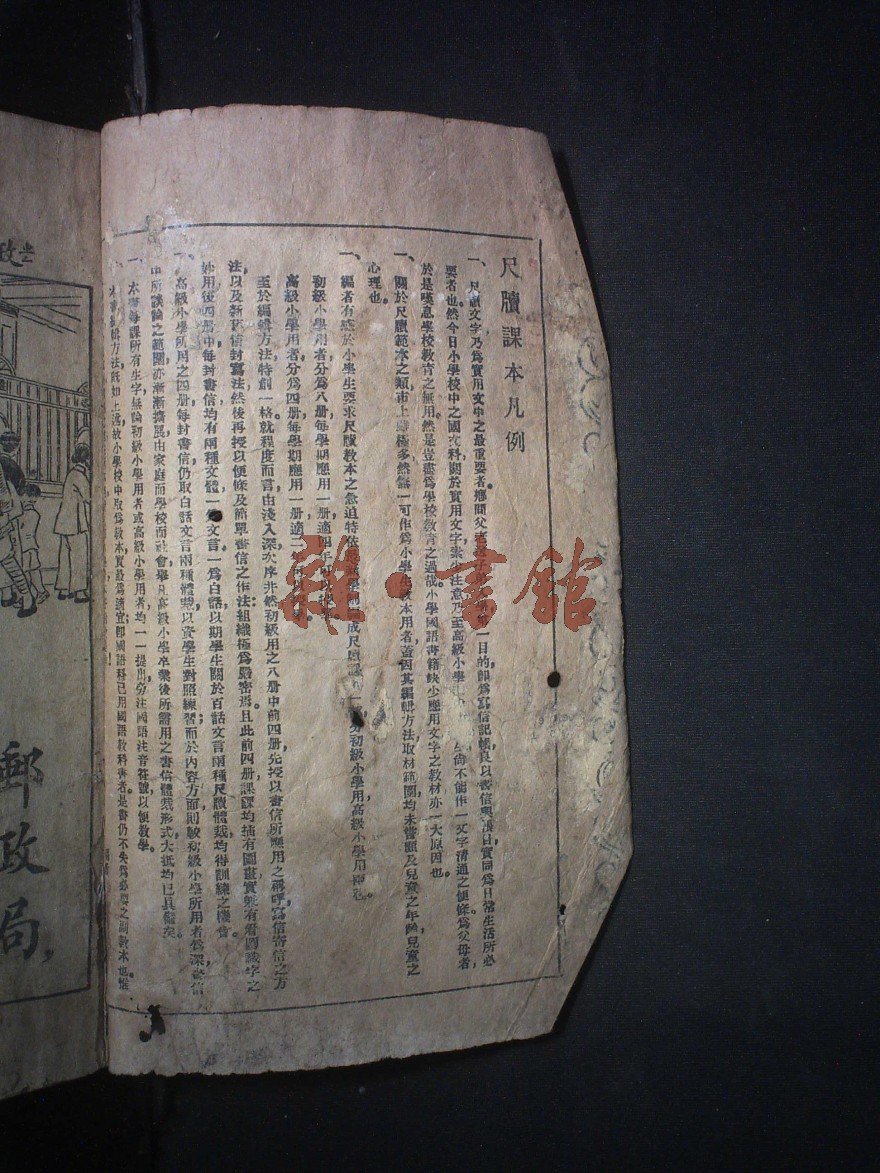 尺牘課本凡例
一、尺牘文字乃爲實用文中之最重要者。鄉間父老送子弟入學第一目的卽爲寫信記帳良以書信與賬目實同爲日常生活所必
要者也然今日小學校中之國文科關於實用文字素少注意乃至高級小學尙不能作一文字清通之便條爲父母者
於是嘆息學校教育之無用。然是豈盡爲學校教育之過哉。小學國語書籍缺少應用文字之教材亦一大原因也。
一、關於尺牘範本之類市上雖極多然無一可作爲小學生教本用者蓋因其編輯方法取材範圍均未嘗顧及兒童之年齡兒童之
心理也。
一、編者有感於小學生要求尺牘教本之急迫特依成尺牘課初級小學用高級小學用兩種。
初級小學用者分爲八册每學期應用一册適四年可以
高級小學用者分爲四册每學期應用一册適二
至於編輯方法特創一格就程度而言由淺入深次序井然初級用之八册中前四册先授以書信所應用之稱呼寫信寄信之方
法以及新舊信封寫法然後再授以便條及簡單書信之作法組織極爲嚴密焉。且此前四册課課均插有圖畫實兼有看圖識字之
妙用後四册中每封書信均有兩種文體一爲文言一爲白話以期學生關於百話文言兩種尺牘體裁均得訓練之機會。
一、高級小學所用之四册每封書信仍取白話文言兩種體裁以資學生對照練習；而於內容方面則較初級小學所用者爲深書信
中所談論之範圍亦漸漸擴展由家庭而學校而社會舉凡高級小學卒業後所需用之書信體裁形式大抵均已具備矣
一、本書每課所有生字無論初級小學用者或高級小學用者均一一提出旁注國語注音符號以便教學。
一、本書編輯方法既如上述故小學校中取爲教本實最爲適宜卽國語科已用國語教科書者。是書仍不失爲必要之副教本也惟
郵政局，
雜·書館